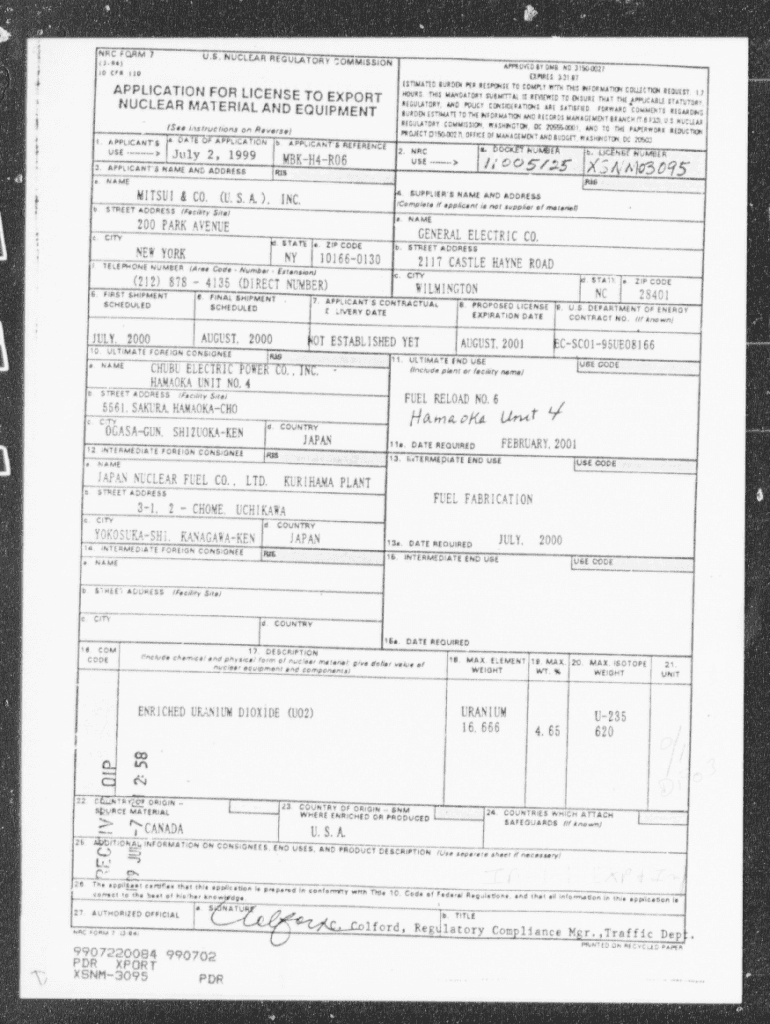 NRC FORM 7
(2-84)
10 CFR 110
U.S. NUCLEAR REGULATORY COMMISSION
APPLICATION FOR LICENSE TO EXPORT
NUCLEAR MATERIAL AND EQUIPMENT
(See Instructions on Reverse)
APPROVED BY OMB NO 3150-0027
EXPIRES 3-31-87
ESTIMATED BURDEN PER RESPONSE TO COMPLY WITH THIS INFORMATION COLLECTION REQUEST: 1.7
HOURS. THIS MANDATORY SUBMITTAL IS REVIEWED TO ENSURE THAT THE APPLICABLE STATUTORY,
REGULATORY, AND POLICY CONSIDERATIONS ARE SATISFIED. FORWARD COMMENTS REGARDING
BURDEN ESTIMATE TO THE INFORMATION AND RECORDS MANAGEMENT BRANCH (T-6 F33), U.S NUCLEAR
REGULATORY COMMISSION, WASHINGTON, DC 20555-0001, AND TO THE PAPERWORK REDUCTION
PROJECT (3150-0027), OFFICE OF MANAGEMENT AND BUDGET, WASHINGTON, DC 20503
1. APPLICANT'S
USE ------>
a. DATE OF APPLICATION
July 2, 1999
b. APPLICANT'S REFERENCE
MBK-H4-R06
2. NRC
USE ---->
a. DOCKET NUMBER
11005125
b. LICENSE NUMBER
XSNM03095
3. APPLICANT'S NAME AND ADDRESS
RIS
RIS
a. NAME
MITSUI & CO. (U.S.A.), INC.
b. STREET ADDRESS (Facility Site)
200 PARK AVENUE
c. CITY
NEW YORK
d. STATE
NY
e. ZIP CODE
10166-0130
f. TELEPHONE NUMBER (Area Code - Number - Extension)
(212) 878 - 4135 (DIRECT NUMBER)
4. SUPPLIER'S NAME AND ADDRESS
(Complete if applicant is not supplier of material)
a. NAME
GENERAL ELECTRIC CO.
b. STREET ADDRESS
2117 CASTLE HAYNE ROAD
c. CITY
WILMINGTON
d. STATE
NC
e. ZIP CODE
28401
5. FIRST SHIPMENT
SCHEDULED
JULY. 2000
6. FINAL SHIPMENT
SCHEDULED
AUGUST. 2000
7. APPLICANT'S CONTRACTUAL
DELIVERY DATE
NOT ESTABLISHED YET
8. PROPOSED LICENSE
EXPIRATION DATE
AUGUST. 2001
9. U.S. DEPARTMENT OF ENERGY
CONTRACT NO. (If known)
EC-SC01-95UE08166
10. ULTIMATE FOREIGN CONSIGNEE
RIS
a. NAME
CHUBU ELECTRIC POWER CO., INC.
HAMAOKA UNIT NO. 4
b. STREET ADDRESS (Facility Site)
5561. SAKURA. HAMAOKA-CHO
c. CITY
OGASA-GUN. SHIZUOKA-KEN
d. COUNTRY
JAPAN
11. ULTIMATE END USE
(Include plant or facility name)
USE CODE
FUEL RELOAD NO. 6
Hamaoka Unit 4
11a. DATE REQUIRED
FEBRUARY. 2001
12. INTERMEDIATE FOREIGN CONSIGNEE
RIS
a. NAME
JAPAN NUCLEAR FUEL CO., LTD. KURIHAMA PLANT
b. STREET ADDRESS
3-1, 2 - CHOME. UCHIKAWA
c. CITY
YOKOSUKA-SHI. KANAGAWA-KEN
d. COUNTRY
JAPAN
13. INTERMEDIATE END USE
USE CODE
FUEL FABRICATION
13a. DATE REQUIRED
JULY. 2000
14. INTERMEDIATE FOREIGN CONSIGNEE
RIS
a. NAME
b. STREET ADDRESS (Facility Site)
c. CITY
d. COUNTRY
15. INTERMEDIATE END USE
USE CODE
15a. DATE REQUIRED
16. COM
CODE
17. DESCRIPTION
(Include chemical and physical form of nuclear material; give dollar value of
nuclear equipment and components)
18. MAX. ELEMENT
WEIGHT
19. MAX.
WT. %
20. MAX. ISOTOPE
WEIGHT
21.
UNIT
ENRICHED URANIUM DIOXIDE (UO2)
URANIUM
16. 666
4. 65
U-235
620
22. COUNTRY OF ORIGIN -
SOURCE MATERIAL
CANADA
23. COUNTRY OF ORIGIN - SNM
WHERE ENRICHED OR PRODUCED
U. S. A.
24. COUNTRIES WHICH ATTACH
SAFEGUARDS (If known)
25. ADDITIONAL INFORMATION ON CONSIGNEES, END USES, AND PRODUCT DESCRIPTION (Use separate sheet if necessary)
26. The applicant certifies that this application is prepared in conformity with Title 10, Code of Federal Regulations, and that all information in this application is
correct to the best of his/her knowledge.
27. AUTHORIZED OFFICIAL
a. SIGNATURE
b. TITLE
C. Colford, Regulatory Compliance Mgr., Traffic Dept.
NRC FORM 7 (2-84)
PRINTED ON RECYCLED PAPER
9907220084 990702
PDR XPORT
XSNM-3095 PDR